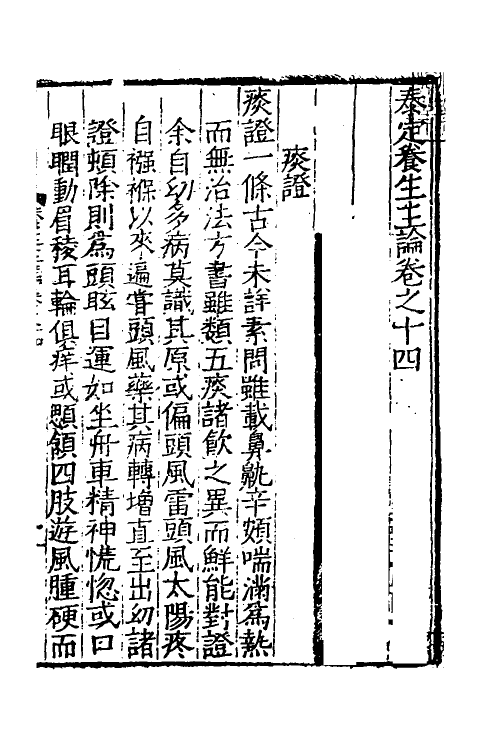 泰定養生主論卷之十四
痰證
痰證一條古今未詳素問雖載鼻鼽辛頞喘滿爲熱
而無治法方書雖類五痰諸飲之異而鮮能對證
余自幼多病莫識其原或偏頭風雷頭風太陽疼
自襁褓以來遍嘗頭風藥其病轉增直至出幼諸
證頓除則爲頭眩目運如坐舟車精神慌惚或口
眼瞤動眉稜耳輪俱痒或顋頷四肢遊風腫硬而